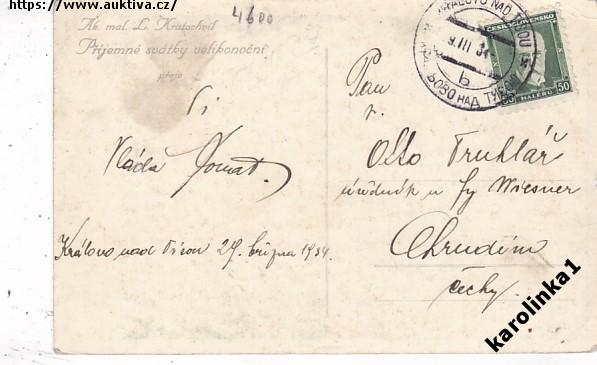 https://www.auktiva.cz/
4600
Ak. mal. L. Kratochvíl
Příjemné svátky velikonoční
přeje
Ti
Vláďa
Královo nad Tisou 29. března 1934.
KRÁLOVO NAD TISOU
9.III 34
b
ČESKOSLOVENSKO
50 HALÉŘŮ 50
Pan
Otto Truhlář
úředník u fy Wiesner
Chrudim
Čechy.
karolinka1